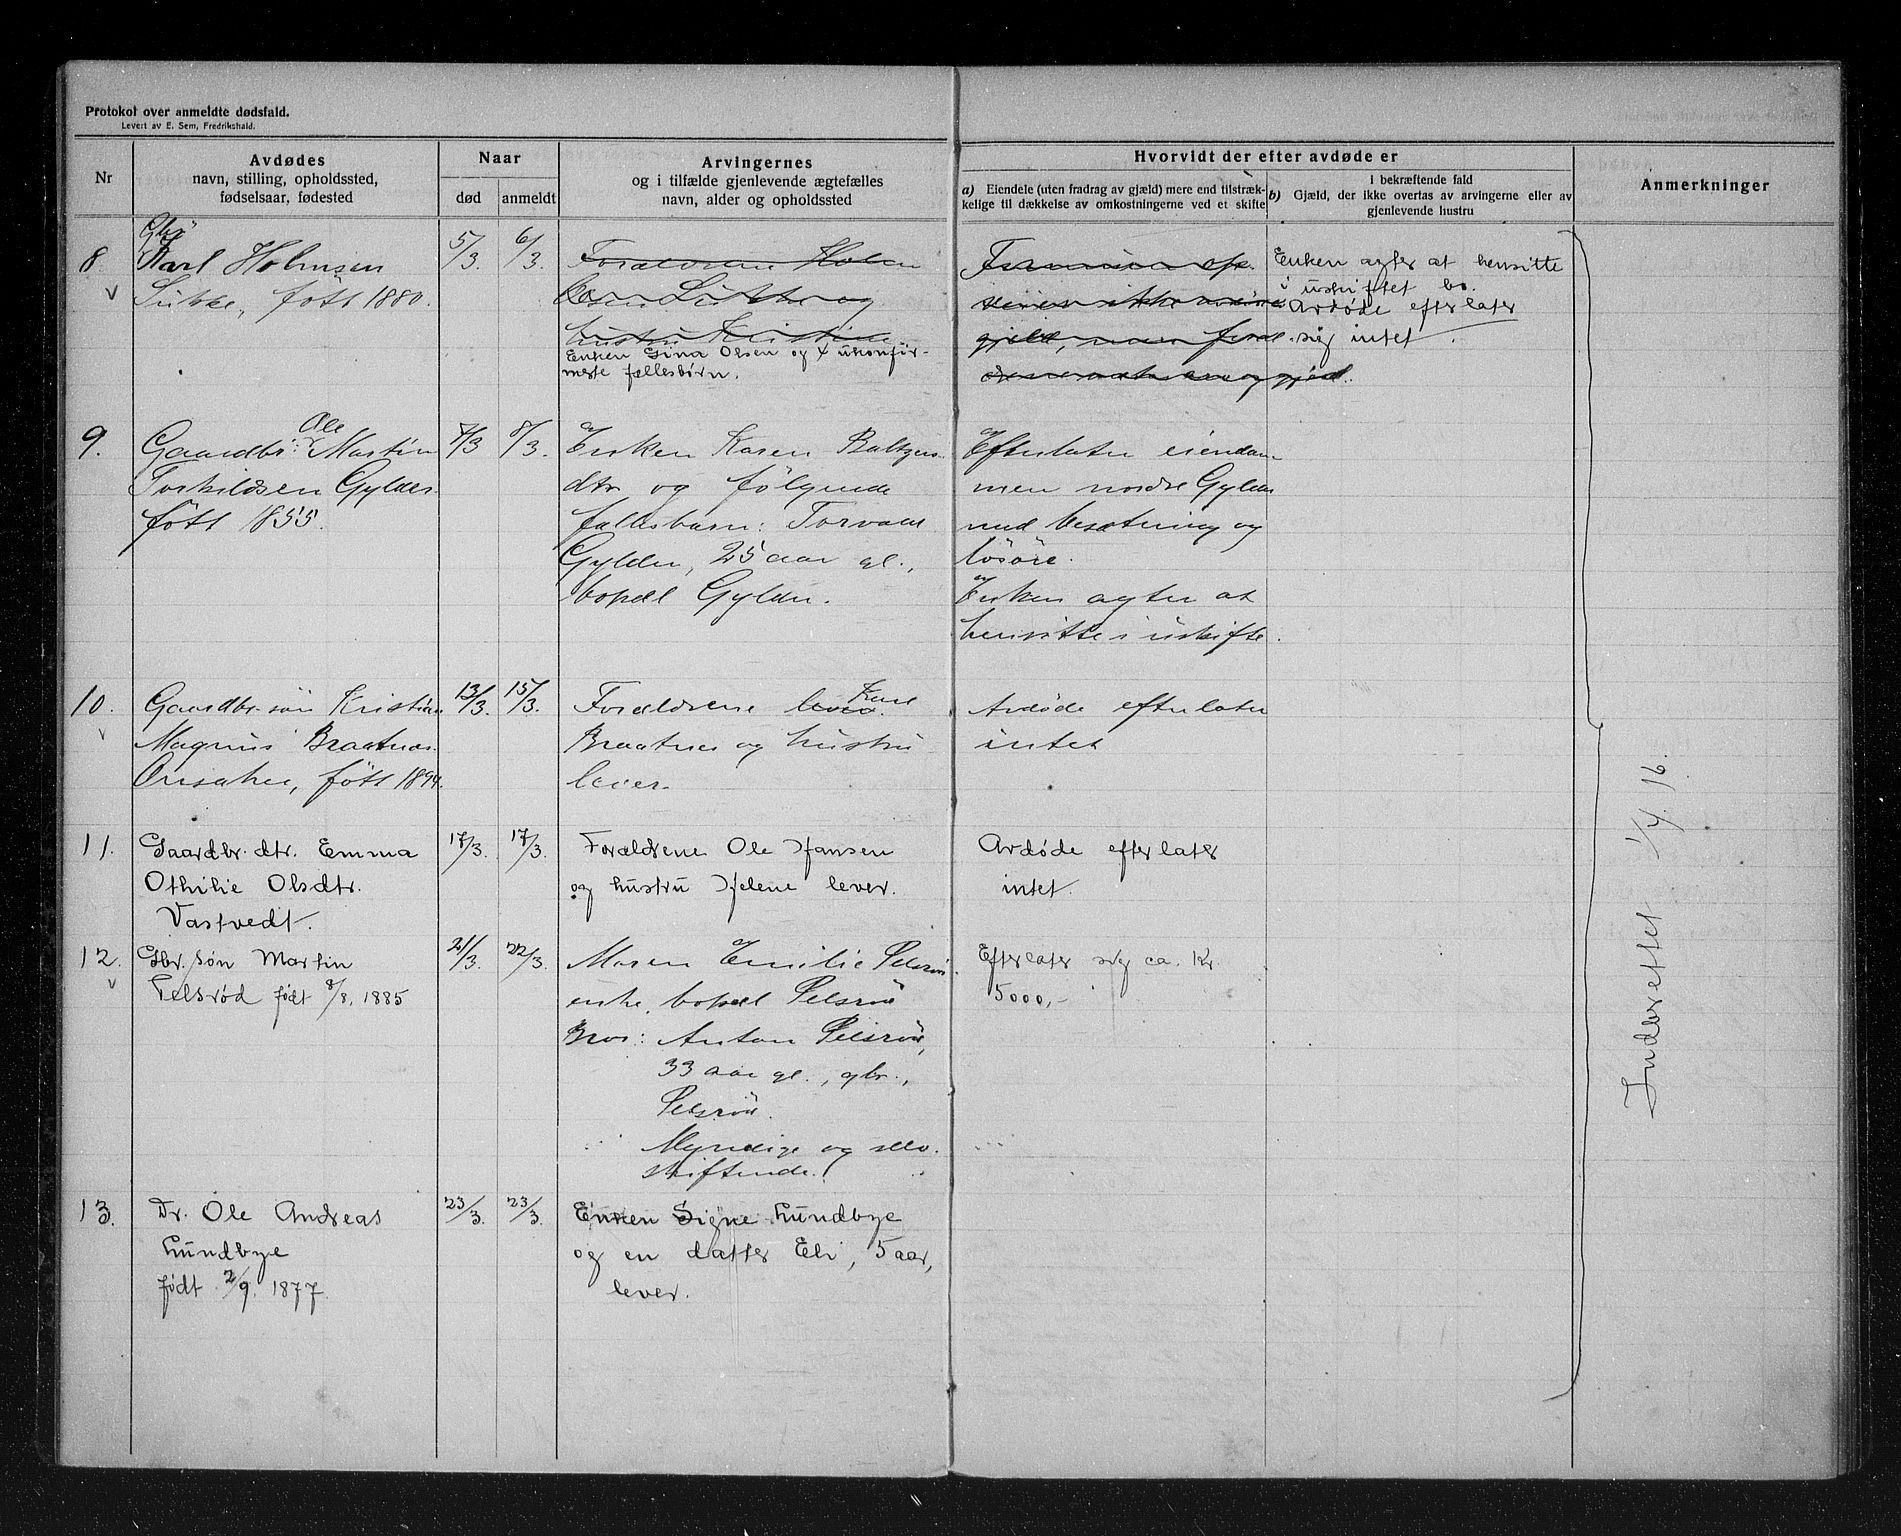 Protokol over anmeldte dødsfald.
Levert av E. Sem, Fredrikshald.
Nr
Avdødes
navn, stilling, opholdssted,
fødselsaar, fødested
Naar
død
anmeldt
Arvingernes
og i tilfælde gjenlevende ægtefælles
navn, alder og opholdssted
Hvorvidt der efter avdøde er
a) Eiendele (uten fradrag av gjæld) mere end tilstræk-
kelige til dækkelse av omkostningerne ved et skifte
i bekræftende fald
b) Gjæld, der ikke overtas av arvingerne eller av
gjenlevende hustru
Anmerkninger
8.
Karl Holmsen
født 1880.
5/3.
6/3.
Forældrene
og
hustru Kristine
Enken Gina Olsen og 4 ukonfir-
merte fællesbørn.
ikke
gjeld,
Enken agter at hensitte
i uskiftet bo.
Avdøde efterlater
sig intet.
9.
Ole
Gaardbr. Martin
Torkildsen Gylder
født 1855.
7/3
8/3.
Enken Karen Baltzers
dtr og følgende
fællesbarn: Torvald
Gylder, 25 aar gl.,
bopæl Gylder.
Efterlater eiendom-
men nordre Gylder
med besætning og
løsøre.
Enken agter at
hensitte i uskifte.
10.
Gaardbr. søn Kristian
Magnus Braatnes
Onsaker, født 1894.
13/3.
15/3.
Forældrene
Braatnes og hustru
lever.
Avdøde efterlater
intet
11.
Gaardbr. dtr. Emma
Othilie Olsdtr.
Vastvedt.
17/3.
17/3.
Forældrene Ole Hansen
og hustru Helene lever.
Avdøde efterlater
intet.
12.
Gbr. søn Martin
Pelsrød født 8/8, 1885
21/3.
22/3.
Maren Emilie Pelsrød
enke, bopæl Pelsrød
Bror: Anton Pelsrød,
33 aar gl., gbr.,
Pelsrød.
Myndige og selv-
skiftende.
Efterlater sig ca. Kr.
5000,-
13.
Dr. Ole Andreas
Lundbye
født 2/9. 1877.
23/3.
23/3.
Enken Signe Lundbye
og en datter Eli, 5 aar,
lever.
Indberettet 1/4 16.